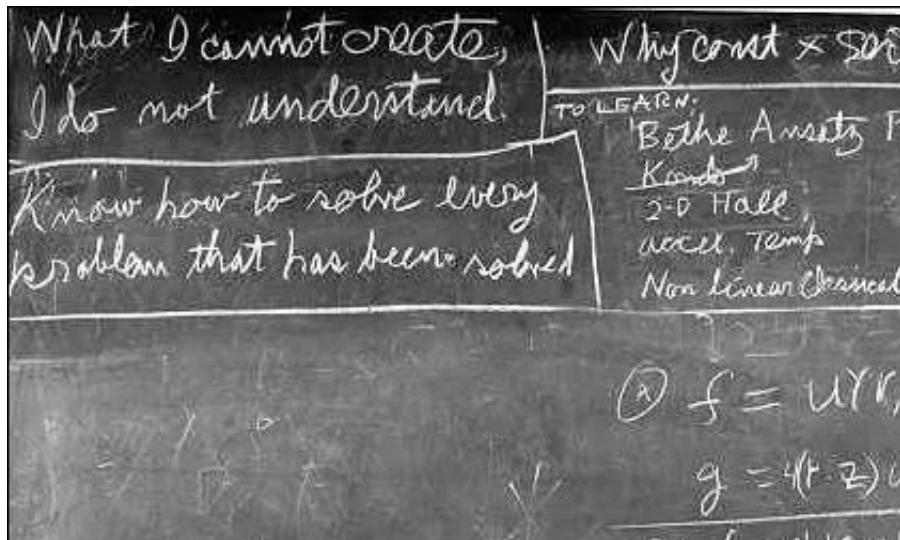 What I cannot create,
I do not understand.
Know how to solve every
problem that has been solved
Why const ×
TO LEARN:
Bethe Ansatz P
Kondo
2-D Hall
accel. Temp
Non linear Classical
f = u(r,
g = 4(r·z) u